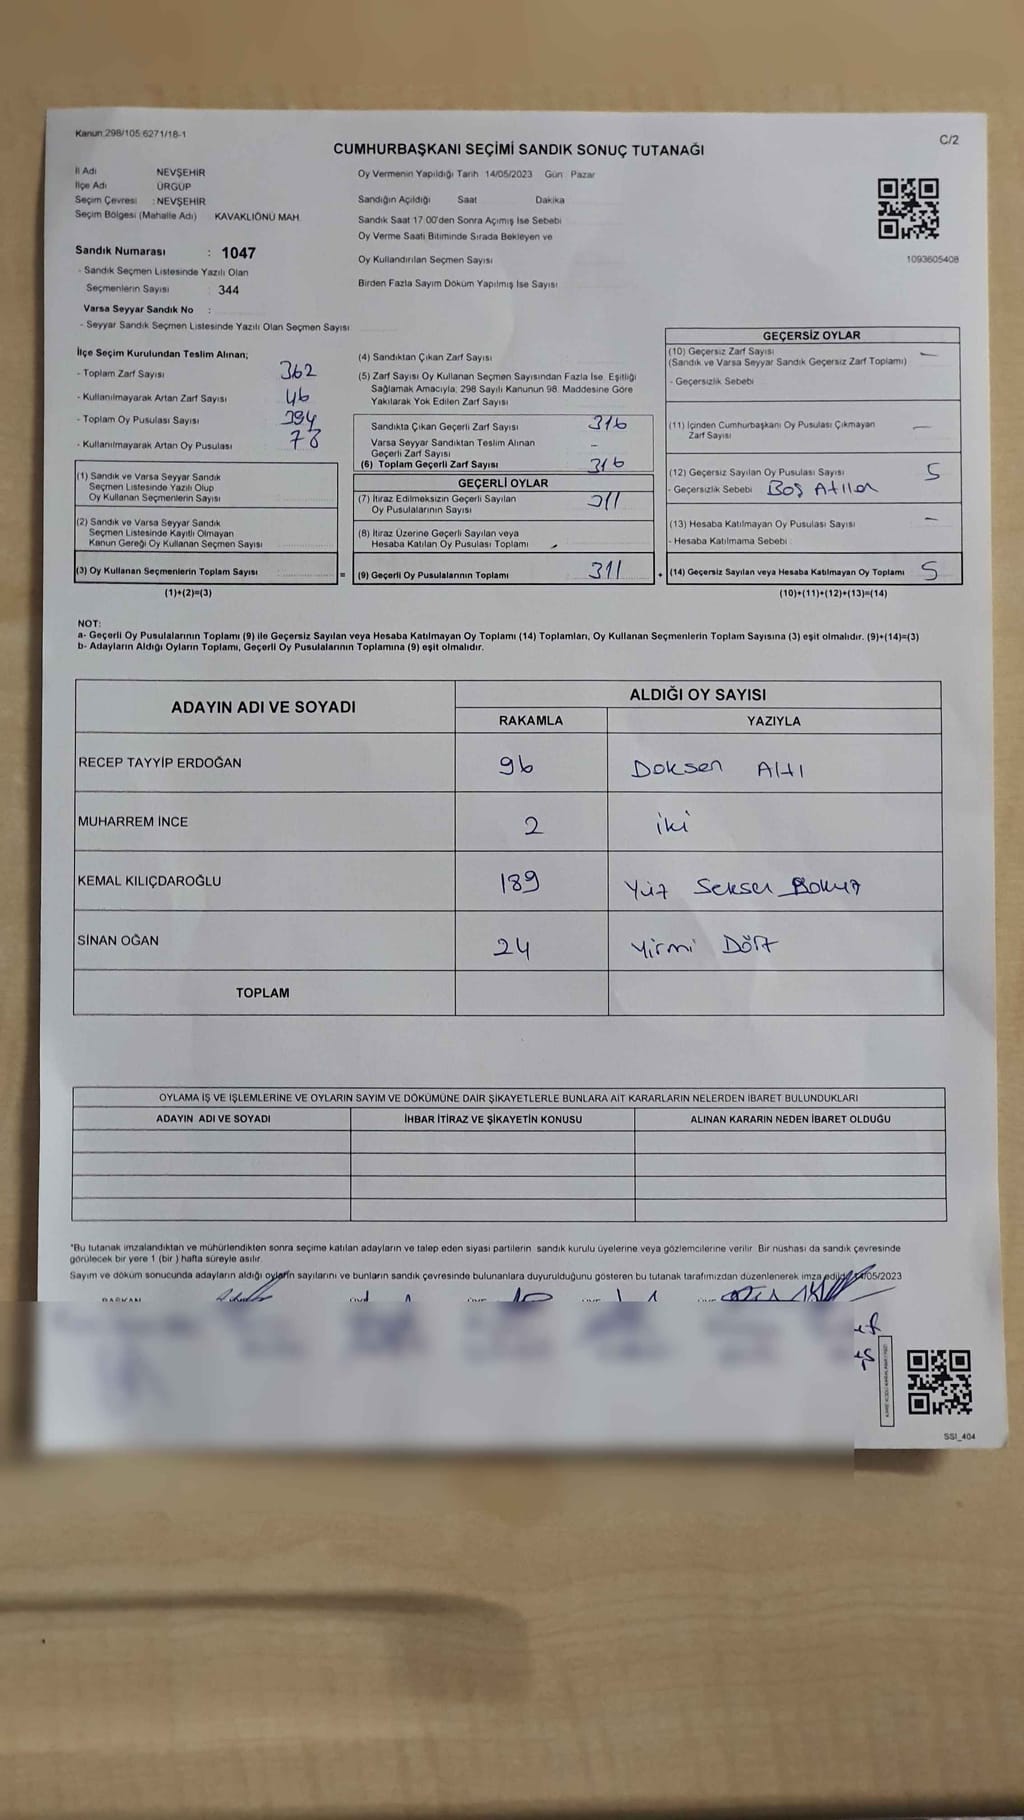 Kanun:298/105.6271/18-1
C/2
CUMHURBAŞKANI SEÇİMİ SANDIK SONUÇ TUTANAĞI
İl Adı NEVŞEHİR
İlçe Adı ÜRGÜP
Seçim Çevresi : NEVŞEHİR
Seçim Bölgesi (Mahalle Adı) KAVAKLIÖNÜ MAH.
Oy Vermenin Yapıldığı Tarih 14/05/2023 Gün Pazar
Sandığın Açıldığı Saat Dakika
Sandık Saat 17.00'den Sonra Açımış İse Sebebi
Oy Verme Saati Bitiminde Sırada Bekleyen ve
Oy Kullandırılan Seçmen Sayısı
Birden Fazla Sayım Döküm Yapılmış İse Sayısı
1093605408
Sandık Numarası : 1047
- Sandık Seçmen Listesinde Yazılı Olan
Seçmenlerin Sayısı : 344
Varsa Seyyar Sandık No :
- Seyyar Sandık Seçmen Listesinde Yazılı Olan Seçmen Sayısı
İlçe Seçim Kurulundan Teslim Alınan;
- Toplam Zarf Sayısı 362
- Kullanılmayarak Artan Zarf Sayısı 46
- Toplam Oy Pusulası Sayısı 394
- Kullanılmayarak Artan Oy Pusulası 78
(1) Sandık ve Varsa Seyyar Sandık
Seçmen Listesinde Yazılı Olup
Oy Kullanan Seçmenlerin Sayısı
(2) Sandık ve Varsa Seyyar Sandık
Seçmen Listesinde Kayıtlı Olmayan
Kanun Gereği Oy Kullanan Seçmen Sayısı
(3) Oy Kullanan Seçmenlerin Toplam Sayısı
(1)+(2)=(3)
(4) Sandıktan Çıkan Zarf Sayısı
(5) Zarf Sayısı Oy Kullanan Seçmen Sayısından Fazla İse, Eşitliği
Sağlamak Amacıyla; 298 Sayılı Kanunun 98. Maddesine Göre
Yakılarak Yok Edilen Zarf Sayısı
Sandıkta Çıkan Geçerli Zarf Sayısı 316
Varsa Seyyar Sandıktan Teslim Alınan
Geçerli Zarf Sayısı -
(6) Toplam Geçerli Zarf Sayısı 316
GEÇERLİ OYLAR
(7) İtiraz Edilmeksizin Geçerli Sayılan
Oy Pusulalarının Sayısı 311
(8) İtiraz Üzerine Geçerli Sayılan veya
Hesaba Katılan Oy Pusulası Toplamı -
= (9) Geçerli Oy Pusulalarının Toplamı 311
GEÇERSİZ OYLAR
(10) Geçersiz Zarf Sayısı —
(Sandık ve Varsa Seyyar Sandık Geçersiz Zarf Toplamı)
- Geçersizlik Sebebi
(11) İçinden Cumhurbaşkanı Oy Pusulası Çıkmayan —
Zarf Sayısı
(12) Geçersiz Sayılan Oy Pusulası Sayısı 5
- Geçersizlik Sebebi Boş Atılan
(13) Hesaba Katılmayan Oy Pusulası Sayısı —
- Hesaba Katılmama Sebebi
+ (14) Geçersiz Sayılan veya Hesaba Katılmayan Oy Toplamı 5
(10)+(11)+(12)+(13)=(14)
NOT:
a- Geçerli Oy Pusulalarının Toplamı (9) ile Geçersiz Sayılan veya Hesaba Katılmayan Oy Toplamı (14) Toplamları, Oy Kullanan Seçmenlerin Toplam Sayısına (3) eşit olmalıdır. (9)+(14)=(3)
b- Adayların Aldığı Oyların Toplamı, Geçerli Oy Pusulalarının Toplamına (9) eşit olmalıdır.
ADAYIN ADI VE SOYADI
ALDIĞI OY SAYISI
RAKAMLA YAZIYLA
RECEP TAYYİP ERDOĞAN 96 Doksan Altı
MUHARREM İNCE 2 iki
KEMAL KILIÇDAROĞLU 189 Yüz Seksen Dokuz
SİNAN OĞAN 24 Yirmi Dört
TOPLAM
OYLAMA İŞ VE İŞLEMLERİNE VE OYLARIN SAYIM VE DÖKÜMÜNE DAİR ŞİKAYETLERLE BUNLARA AİT KARARLARIN NELERDEN İBARET BULUNDUKLARI
ADAYIN ADI VE SOYADI İHBAR İTİRAZ VE ŞİKAYETİN KONUSU ALINAN KARARIN NEDEN İBARET OLDUĞU
*Bu tutanak imzalandıktan ve mühürlendikten sonra seçime katılan adayların ve talep eden siyasi partilerin sandık kurulu üyelerine veya gözlemcilerine verilir. Bir nüshası da sandık çevresinde
görülecek bir yere 1 (bir ) hafta süreyle asılır.
Sayım ve döküm sonucunda adayların aldığı oyların sayılarını ve bunların sandık çevresinde bulunanlara duyurulduğunu gösteren bu tutanak tarafımızdan düzenlenerek imza edildi. 14/05/2023
BAŞKAN
SSI_404